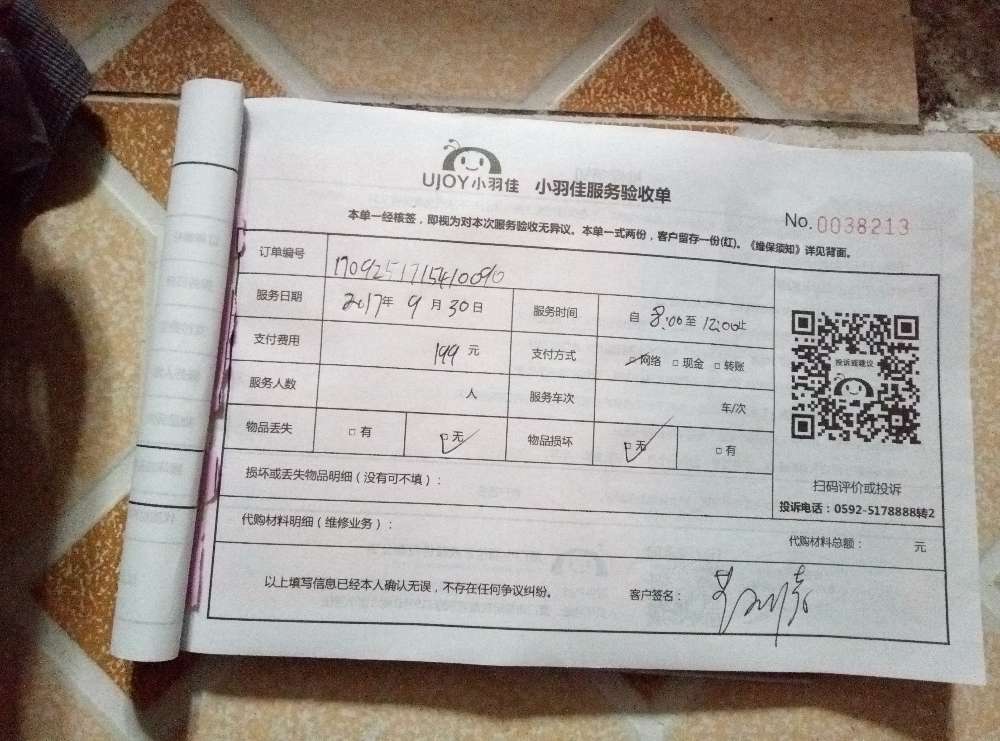 UJOY小羽佳 小羽佳服务验收单
No. 0038213
本单一经核签，即视为对本次服务验收无异议。本单一式两份，客户留存一份(红)。《维保须知》详见背面。
订单编号 1709251715410090
服务日期 2017年 9 月 30 日 服务时间 自 8:00 至 12:00止
支付费用 199 元 支付方式 □网络 □现金 □转账
服务人数 人 服务车次 车/次
物品丢失 □有 □无 物品损坏 □无 □有
投诉或建议
扫码评价或投诉
投诉电话：0592-5178888转2
损坏或丢失物品明细（没有可不填）：
代购材料明细（维修业务）：
代购材料总额： 元
以上填写信息已经本人确认无误，不存在任何争议纠纷。 客户签名：